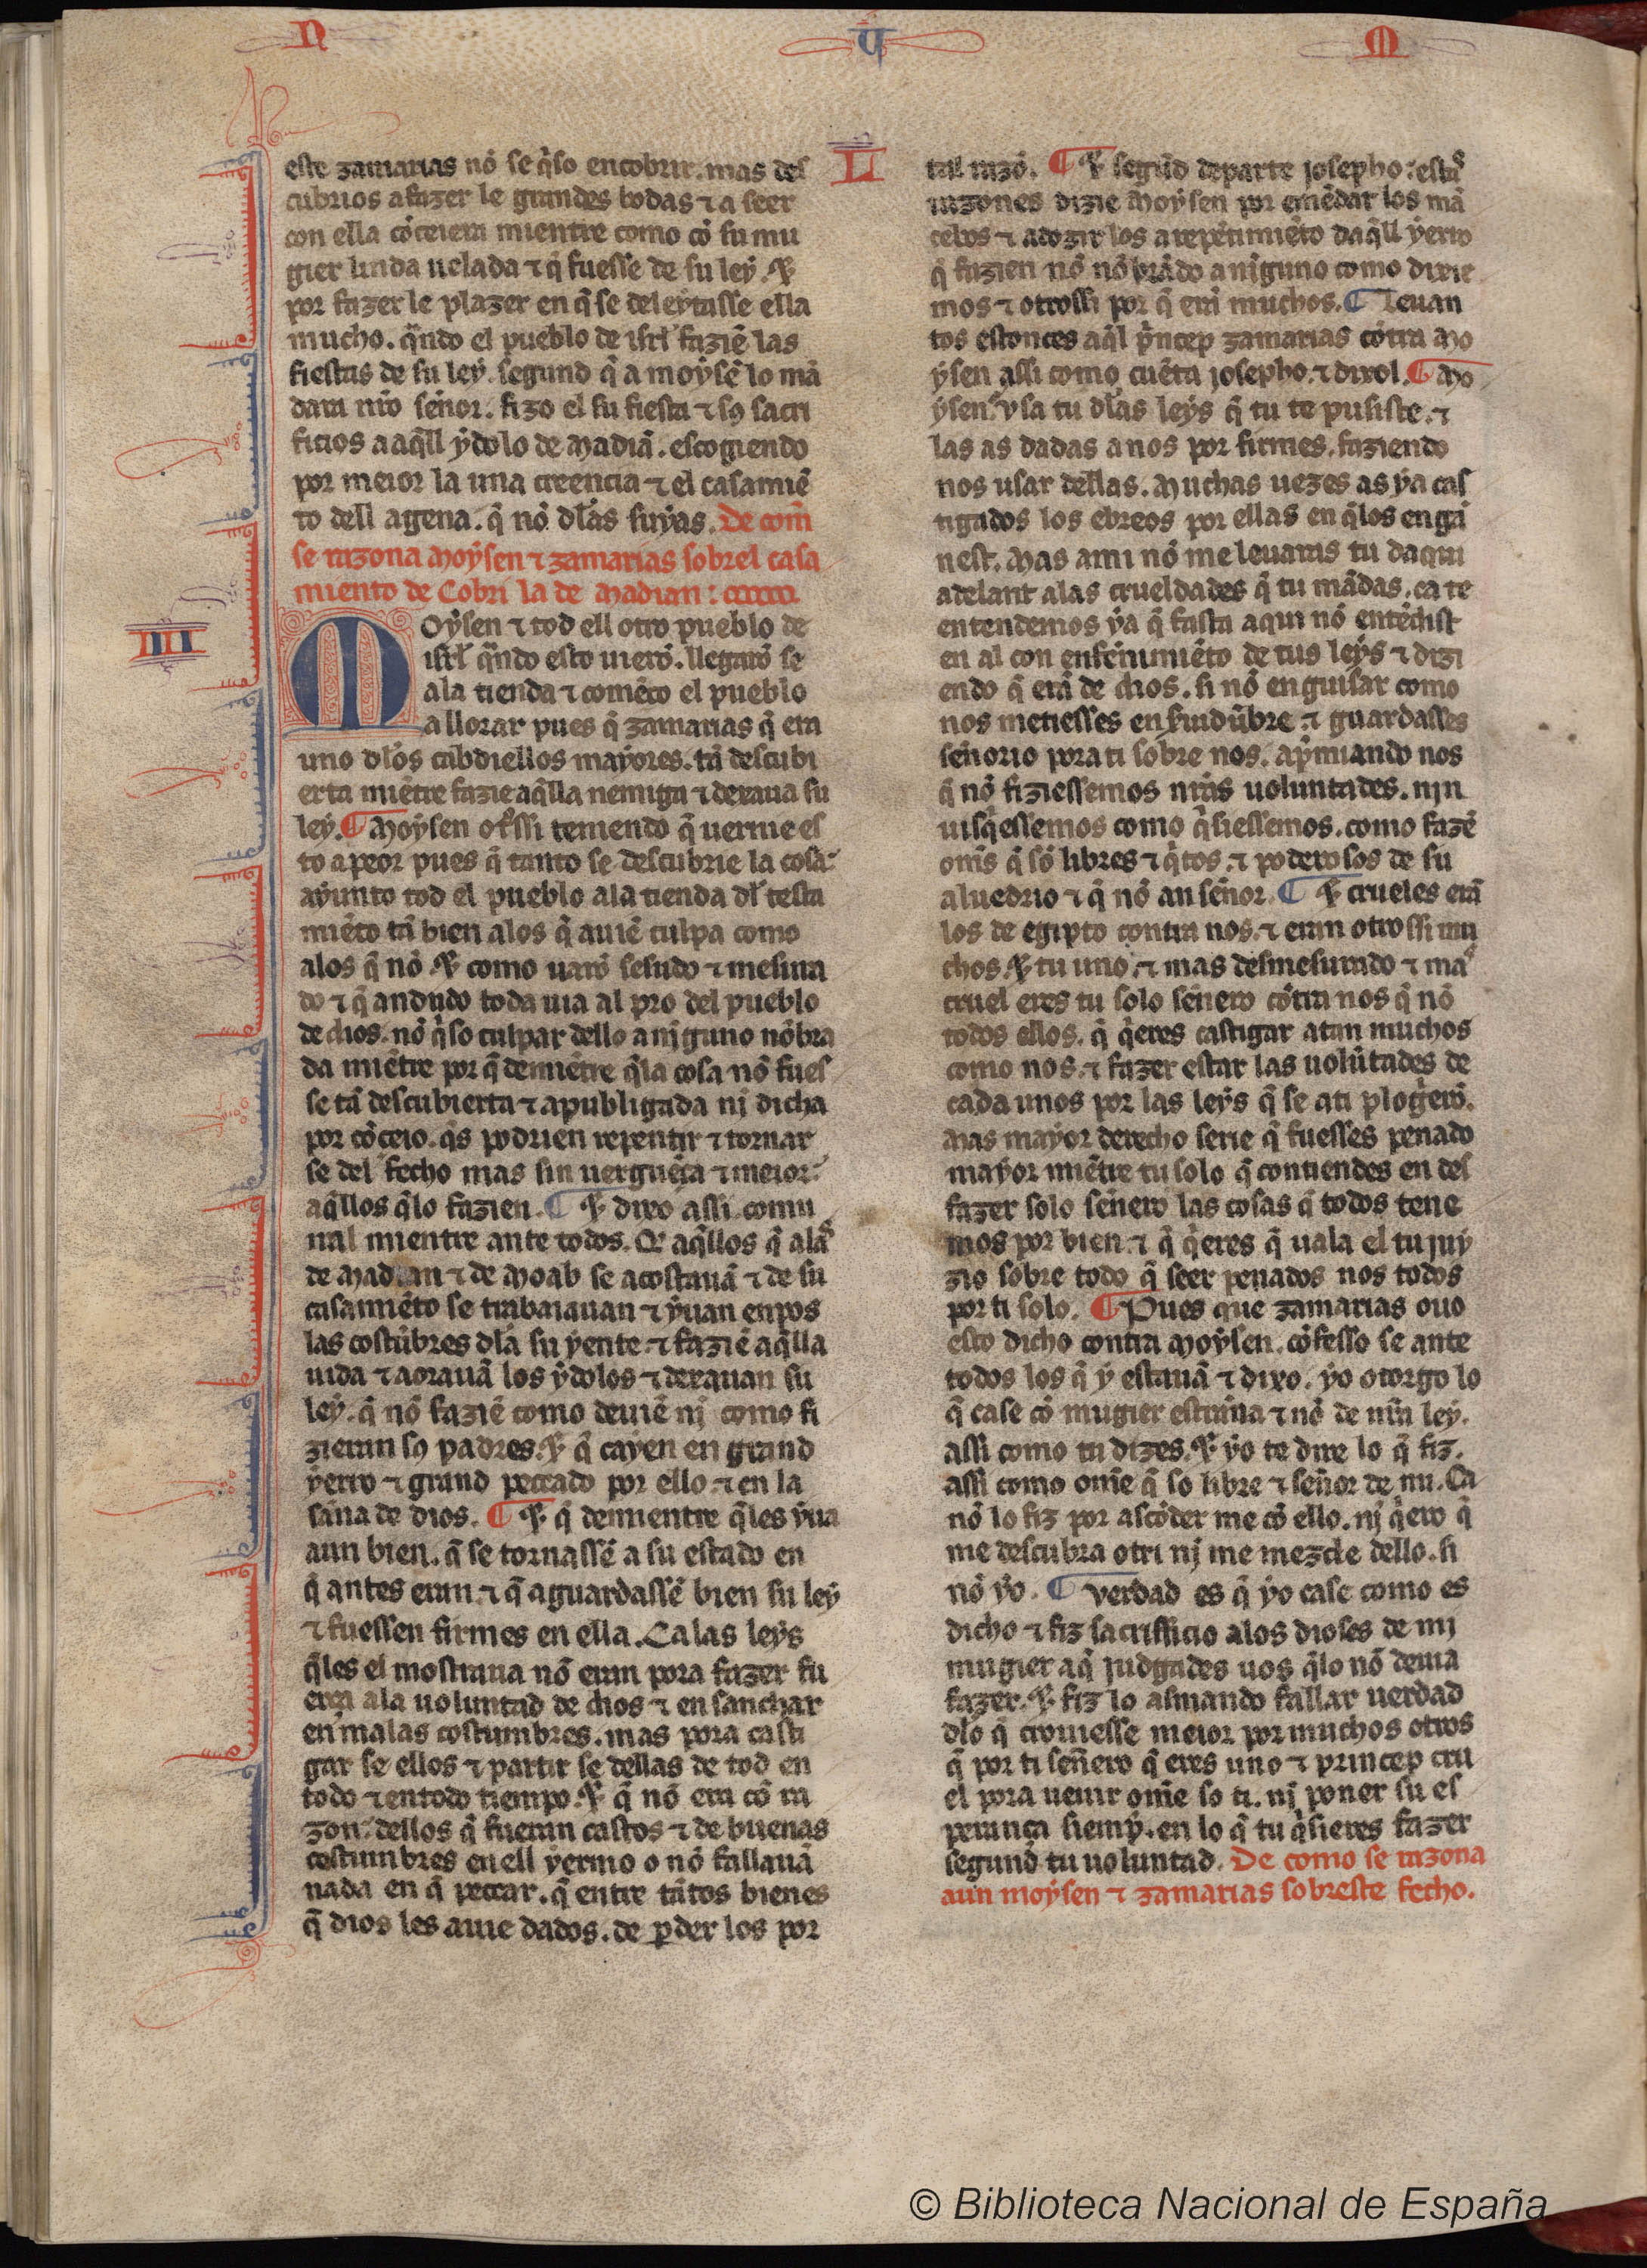 N U M
este zamarias nõ se q̃so encobrir. mas des
cubrios a fazer le grandes bodas ⁊ a seer
con ella cõceiera mientre como cõ su mu
gier linda uelada ⁊ q̃ fuesse de su leẏ. ⁊
por fazer le plazer en q̃ se deleẏtasse ella
mucho. q̃ndo el pueblo de isrl̃ faziẽ las
fiestas de su leẏ. segund q̃ a moẏsẽ lo mã
dara nr̃o señor. fizo el su fiesta ⁊ sꝯ sacri
ficios a aq̃ll ẏdolo de Madiã. escogiendo
por meior la una creencia ⁊ el casamiẽ
to dell agena. q̃ nõ dl̃as suẏas. De com̃
se razona Moẏsen ⁊ zamarias sobrel casa
miento de Cobri la de Madian:
IIII
MOẏsen ⁊ tod ell otro pueblo de
isrl̃ q̃ndo esto uierõ. llegarõ se
a la tienda ⁊ comẽço el pueblo
a llorar pues q̃ zamarias q̃ era
uno dl̃os cabdiellos maẏores. tã descubi
erta miẽtre fazie aq̃lla nemiga ⁊ dexaua su
leẏ. ¶ Moẏsen ot̃ssi temiendo q̃ uernie es
to a peor pues q̃ tanto se descubrie la cosa
aẏunto tod el pueblo a la tienda dl̃ testa
miẽto tã bien alos q̃ auiẽ culpa como
alos q̃ nõ. ⁊ como uarõ sesudo ⁊ mesura
do ⁊ q̃ andudo toda uia al pro del pueblo
de dios. nõ q̃so culpar dello a nĩguno nõbra
da miẽtre por q̃ demiẽtre q̃la cosa nõ fues
se tã descubierta ⁊ apubligada nĩ dicha
por cõceio. q̃s podrien repentir ⁊ tornar
se del fecho mas sin uerguẽça ⁊ meior
aq̃llos q̃lo fazien. ¶ ⁊ dixo assi comu
nal mientre ante todos. Q̃ aq̃llos q̃ alas
de Madian ⁊ de Moab se acostauã ⁊ de su
casamiẽto se trabaiauan ⁊ ẏuan enpos
las costũbres dl̃a su ẏente. ⁊ faziẽ aq̃lla
uida ⁊ aorauã los ẏdolos ⁊ dexauan su
leẏ. q̃ nõ faziẽ como deuiẽ nĩ como fi
zieran sꝯ padres. ⁊ q̃ caẏen en grand
ẏerro ⁊ grand peccado por ello. ⁊ en la
saña de dios. ¶ ⁊ q̃ demientre q̃les ẏua
aun bien. q̃ se tornassẽ a su estado en
q̃ antes eran. ⁊ q̃ aguardassẽ bien su leẏ
⁊ fuessen firmes en ella. Ca las leẏs
q̃les el mostraua nõ eran pora fazer fu
erça ala uoluntad de dios ⁊ ensanchar
en malas costumbres. mas pora casti
gar se ellos ⁊ partir se dellas de tod en
todo ⁊ en todo tiempo. ⁊ q̃ nõ era cõ ra
zon. dellos q̃ fueran castos ⁊ de buenas
costumbres en ell ẏermo o nõ fallauã
nada en q̃ peccar. q̃ entre tãtos bienes
q̃ dios les auie dados. de ꝑder los por
L
tal razõ. ¶ ⁊ segũd departe josepho: estas
razones dizie Moẏsen por emẽdar los mã
cebos ⁊ adozir los a repẽtimiẽto daq̃ll ẏerro
q̃ fazien nõ nõbrãdo a nĩguno como dixie
mos ⁊ otrossi por q̃ erã muchos. ¶ Leuan
tos estonces aq̃l p̃ncep zamarias cõtra Mo
ẏsen assi como cuẽta josepho. ⁊ dixol. ¶ Mo
ẏsen usa tu dl̃as leẏs q̃ tu te pusiste. ⁊
las as dadas a nos por firmes. faziendo
nos usar dellas. Muchas uezes as ẏa cas
tigados los ebreos por ellas en q̃los enga
nest. Mas a mi nõ me leuaras tu daqui
adelant alas crueldades q̃ tu mãdas. ca te
entendemos ẏa q̃ fasta aqui nõ entẽdist
en al con enseñamiẽto de tus leẏs ⁊ dizi
endo q̃ erã de dios. si nõ en guisar como
nos metiesses en seruidũbre ⁊ guardasses
señorio pora ti sobre nos. ap̃miando nos
q̃ nõ fiziessemos nr̃as uoluntades. nin
uisq̃essemos como q̃siessemos. como fazẽ
om̃s q̃ sõ libres ⁊ q̃tos. ⁊ poderosos de su
aluedrio ⁊ q̃ nõ an señor. ¶ ⁊ crueles erã
los de egipto contra nos. ⁊ eran otrossi mu
chos. ⁊ tu uno. ⁊ mas desmesurado ⁊ mas
cruel eres tu solo señero cõtra nos q̃ nõ
todos ellos. q̃ q̃eres castigar a tan muchos
como nos. ⁊ fazer estar las uolũtades de
cada unos por las leẏs q̃ se a ti plogerõ.
Mas maẏor derecho serie q̃ fuesses penado
maẏor miẽtre tu solo q̃ contiendes en des
fazer solo señero las cosas q̃ todos tene
mos por bien. ⁊ q̃ q̃eres q̃ uala el tu juẏ
zio sobre todo q̃ seer penados nos todos
por ti solo. ¶ Pues que zamarias ouo
esto dicho contra Moẏsen. cõfesso se ante
todos los q̃ ẏ estauã ⁊ dixo. ẏo otorgo lo
q̃ case cõ mugier estraña ⁊ nõ de nr̃a leẏ.
assi como tu dizes. ⁊ ẏo te dire lo q̃ fiz.
assi como om̃e q̃ so libre ⁊ señor de mi. Ca
nõ lo fiz por ascõder me cõ ello. nĩ q̃ero q̃
me descubra otri nĩ me mezcle dello. si
nõ ẏo. ¶ Verdad es q̃ ẏo case como es
dicho ⁊ fiz sacrifficio alos dioses de mi
mugier aq̃ judgades uos q̃lo nõ deuia
fazer. ⁊ fiz lo asmando fallar uerdad
dlo q̃ crouiesse meior por muchos otros
q̃ por ti señero q̃ eres uno ⁊ princep cru
el pora uenir om̃e so ti. nĩ poner su es
perança siemp̃. en lo q̃ tu q̃sieres fazer
segund tu uoluntad. De como se razona
aun moẏsen ⁊ zamarias sobreste fecho.
© Biblioteca Nacional de España